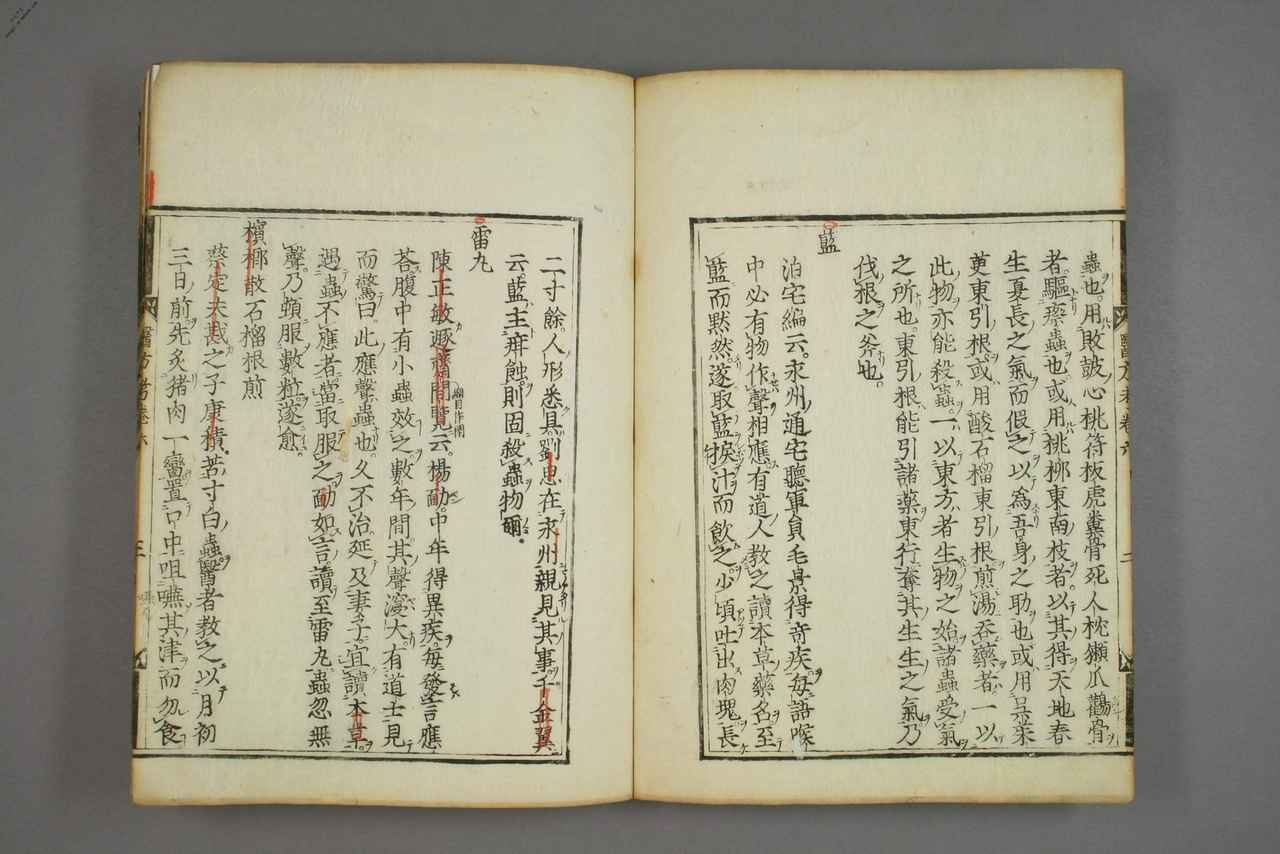 蟲也用敗鼓心桃符板虎糞骨死人枕獺爪鸛骨
者驅瘵蟲也或用桃柳東南枝者以其得天地春
生夏長之氣而假之以為吾身之助也或用吳茱
萸東引根或用酸石榴東引根煎湯吞藥者一以
此物亦能殺蟲一以東方者生物之始諸蟲受氣
之所也東引根能引諸藥東行奪其生生之氣乃
伐根之斧也
藍
泊宅編云永州通宅聽軍員毛景得奇疾每語喉
中必有物作聲相應有道人教之讀本草藥名至
藍而黙然遂取藍捩汁而飲之少頃吐出肉塊長
二寸餘人形悉具劉忠在永州親見其事千金翼
云藍主疰蝕則固殺蟲物爾
雷丸
陳正敏遯齋間覽云楊勔中年得異疾每發言應
荅腹中有小蟲效之數年間其聲浸大有道士見
而驚曰此應聲蟲也久不治延及妻子宜讀本草
遇蟲不應者當取服之勔如言讀至雷丸蟲忽無
聲乃頓服數粒遂愈
檳榔散石榴根煎
蔡定夫戡之子康積苦寸白蟲醫者教之以月初
三日前先炙猪肉一臠置口中咀嚥其津而勿食
醫方考卷六
三